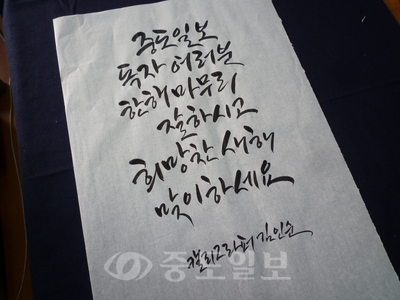 중도일보
독자 여러분
한해 마무리
잘하시고
희망찬 새해
맞이하세요
캘리그라퍼 김인순
중도일보